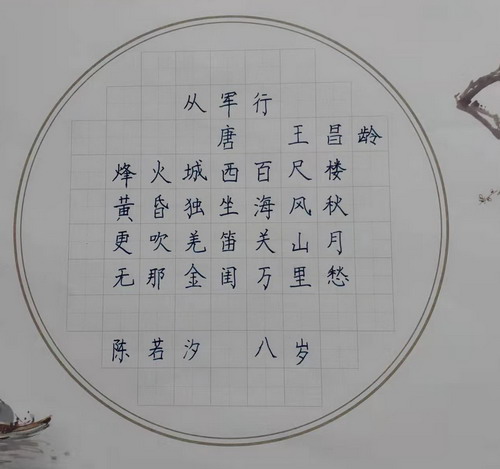 从军行
唐 王昌龄
烽火城西百尺楼
黄昏独坐海风秋
更吹羌笛关山月
无那金闺万里愁
陈若汐 八岁